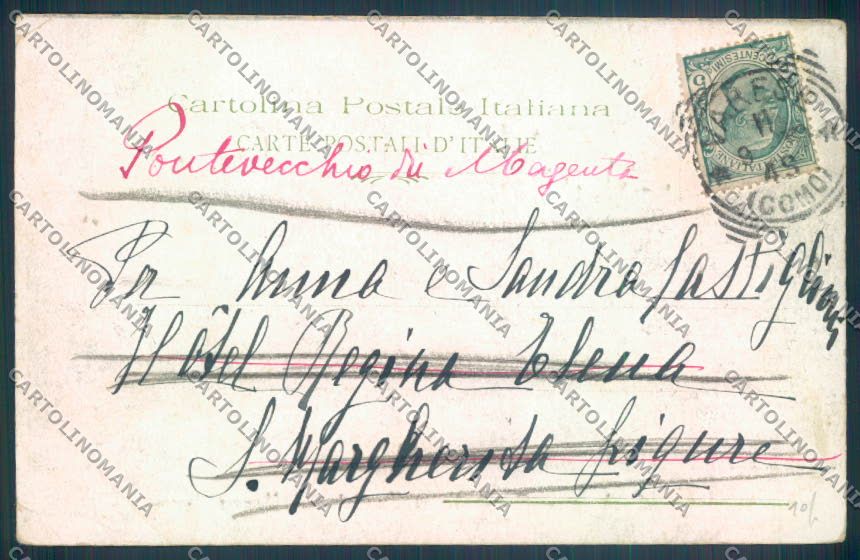 Cartolina Postale Italiana
CARTE POSTALI D'ITALIE
Pontevecchio di Magenta
Per Anna e Sandra Castiglioni
Hôtel Regina Elena
S. Margherita Ligure
VARESE
(COMO)
CENTESIMI
5
CARTOLINOMANIA